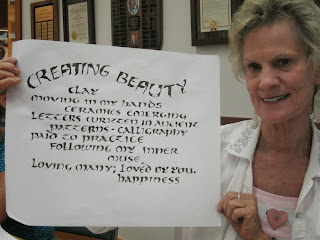 CREATING BEAUTY
CLAY
MOVING IN MY HANDS
CERAMICS EMERGING
LETTERS WRITTEN IN ANCIENT
PATTERNS - CALLIGRAPHY
PAID TO PRACTICE
FOLLOWING MY INNER
MUSE
LOVING MANY; LOVED BY YOU.
HAPPINESS